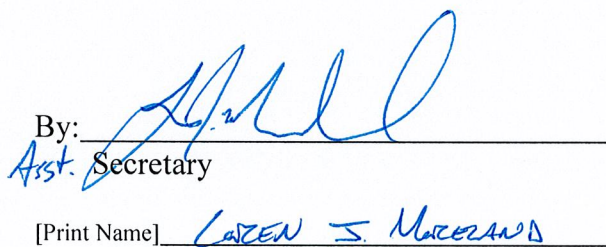 By:
Asst. Secretary
[Print Name] LOREN J. MORELAND